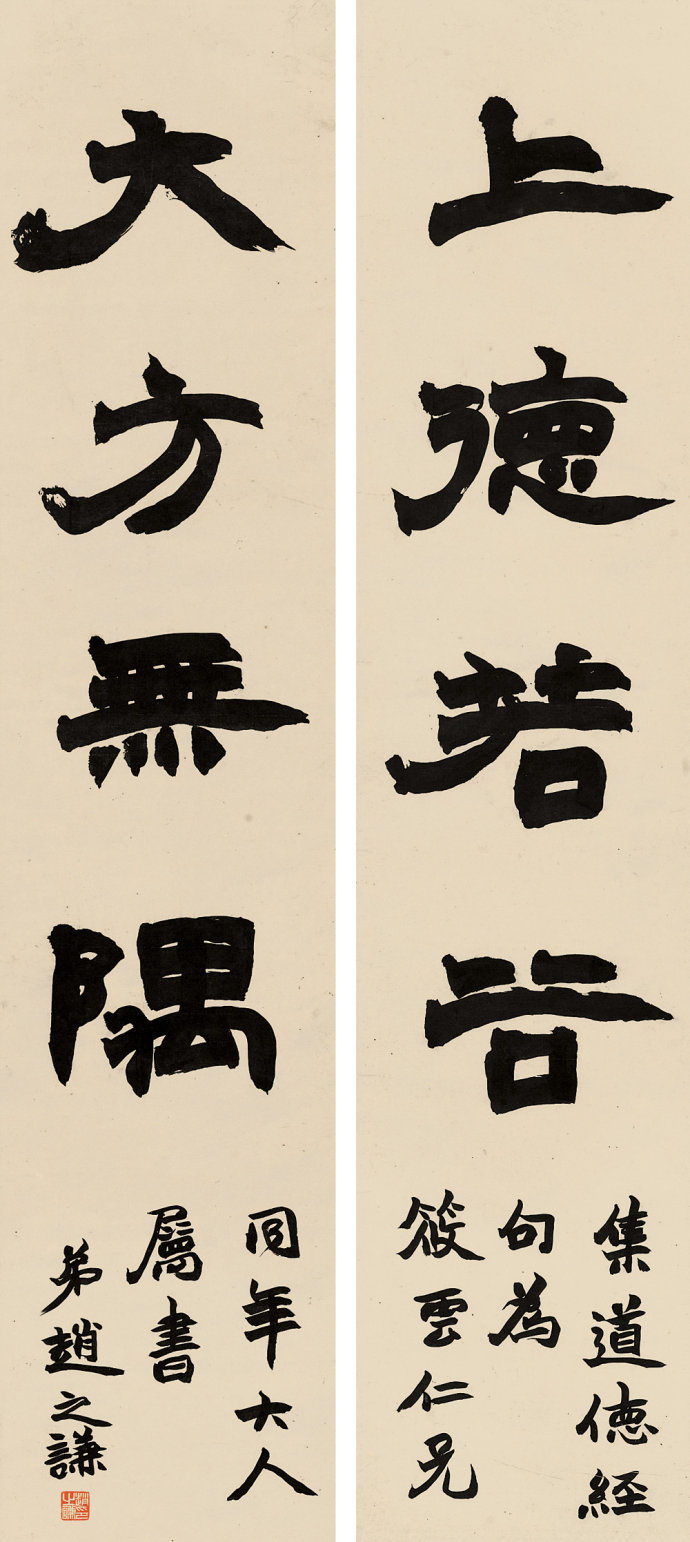 上德若谷
集道德經
句為
筱雲仁兄
大方無隅
同年大人
屬書
弟趙之謙
趙之謙印